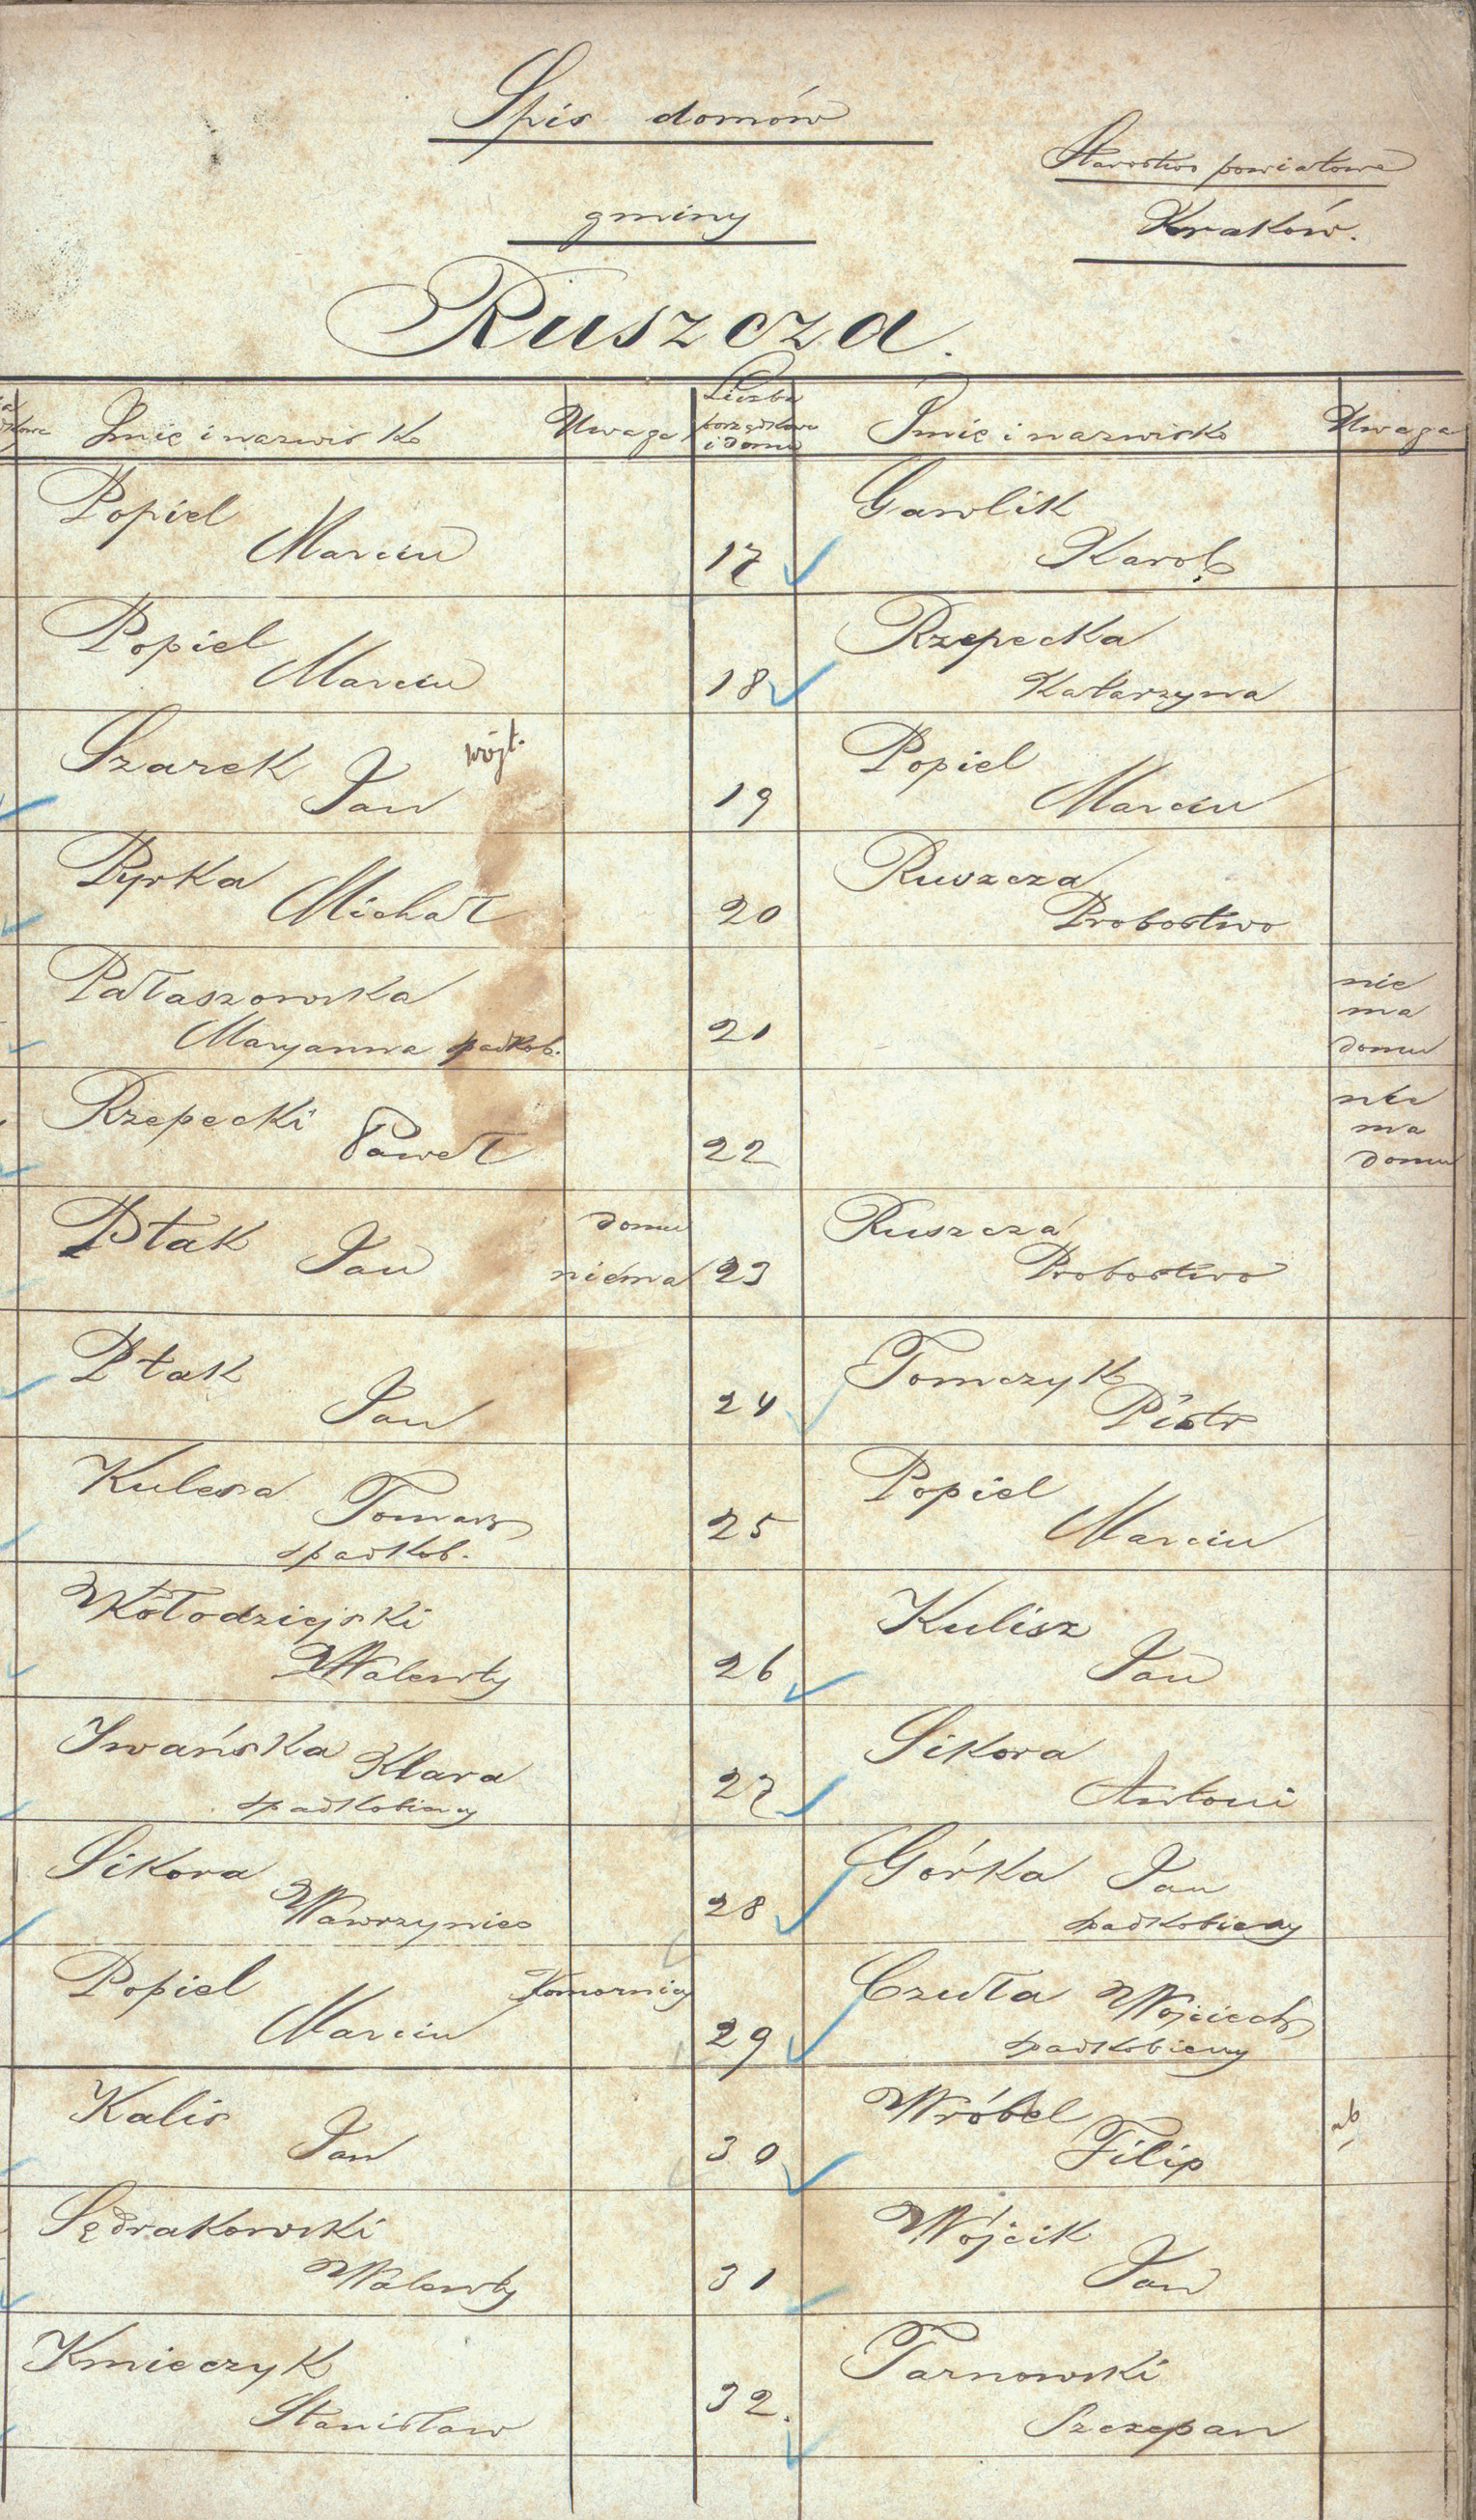 Spis domów
Starostwo powiatowe
gminy
Kraków.
Ruszcza.
Imię i nazwisko
Uwaga
Liczba
porządkowa
i domu
Imię i nazwisko
Uwaga
Popiel
Marcin
17
Gawlik
Karol
Popiel
Marcin
18
Rzepecka
Katarzyna
Szarek wójt.
Jan
19
Popiel
Marcin
Pyrka
Michał
20
Ruszcza
Probostwo
Pałaszowska
Maryanna spadkob.
21
nie
ma
domu
Rzepecki
Paweł
22
nie
ma
domu
Ptak Jan
domu
niema
23
Ruszcza
Probostwo
Ptak
Jan
24
Tomczyk
Piotr
Kulesa Tomasz
spadkob.
25
Popiel
Marcin
Kołodziejski
Walenty
26
Kulisz
Jan
Iwańska Klara
spadkobiercy
27
Sikora
Antoni
Sikora
Wawrzyniec
28
Górka Jan
spadkobiercy
Popiel Komornicy
Marcin
29
Czuła Wojciech
spadkobiercy
Kalis
Jan
30
Wróbel
Filip
Sędrakowski
Walenty
31
Wójcik
Jan
Kmieczyk
Stanisław
32.
Tarnowski
Szczepan